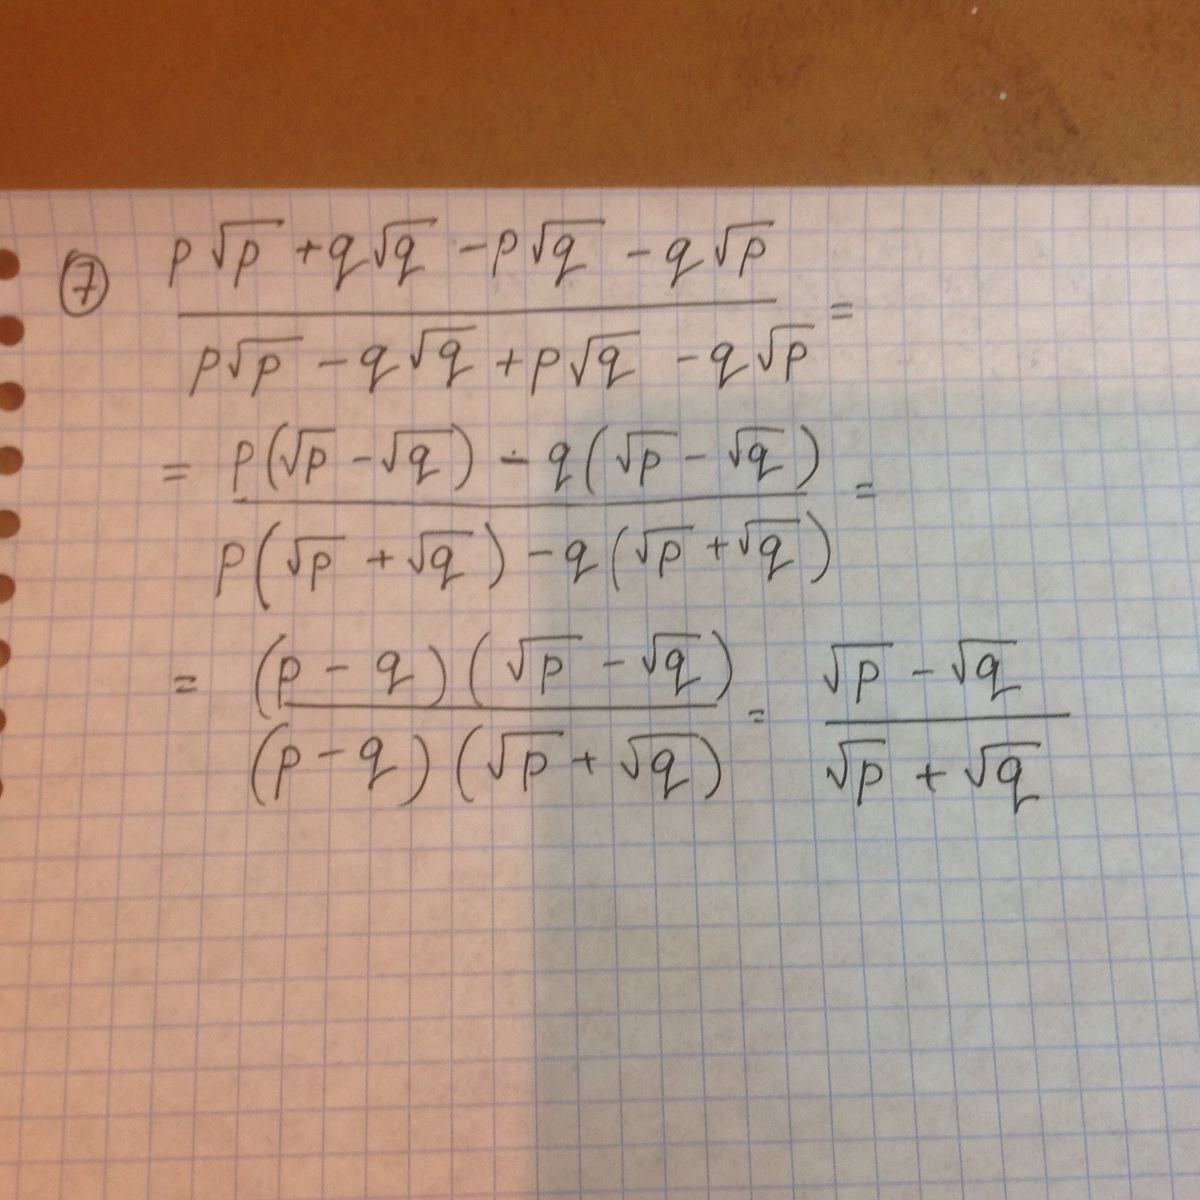 ⑦ p√p + q√q - p√q - q√p
p√p - q√q + p√q - q√p =
= p(√p - √q) - q(√p - √q)
p(√p + √q) - q(√p + √q) =
= (p - q)(√p - √q) = √p - √q
(p - q)(√p + √q) √p + √q